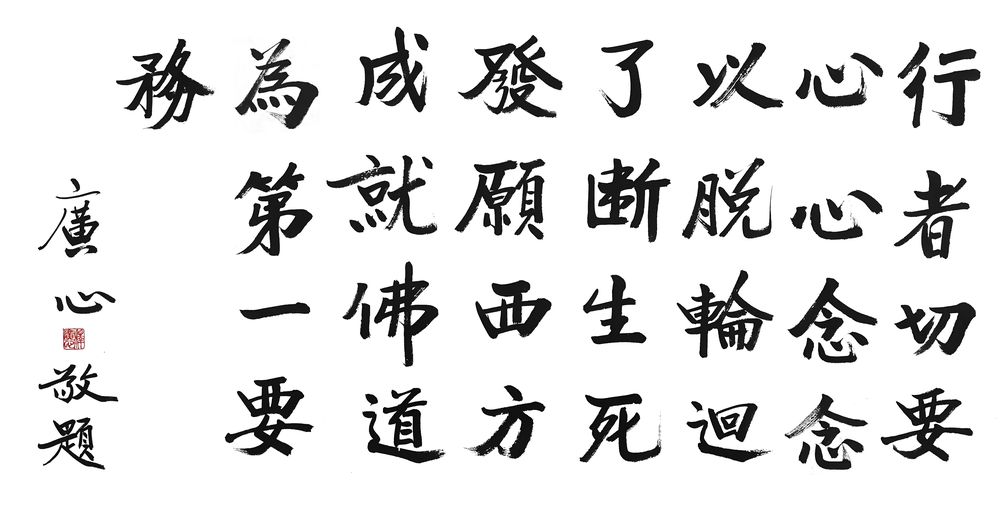 行者切要
心心念念
以脱輪迴
了断生死
發願西方
成就佛道
為第一要
務
廣心敬題